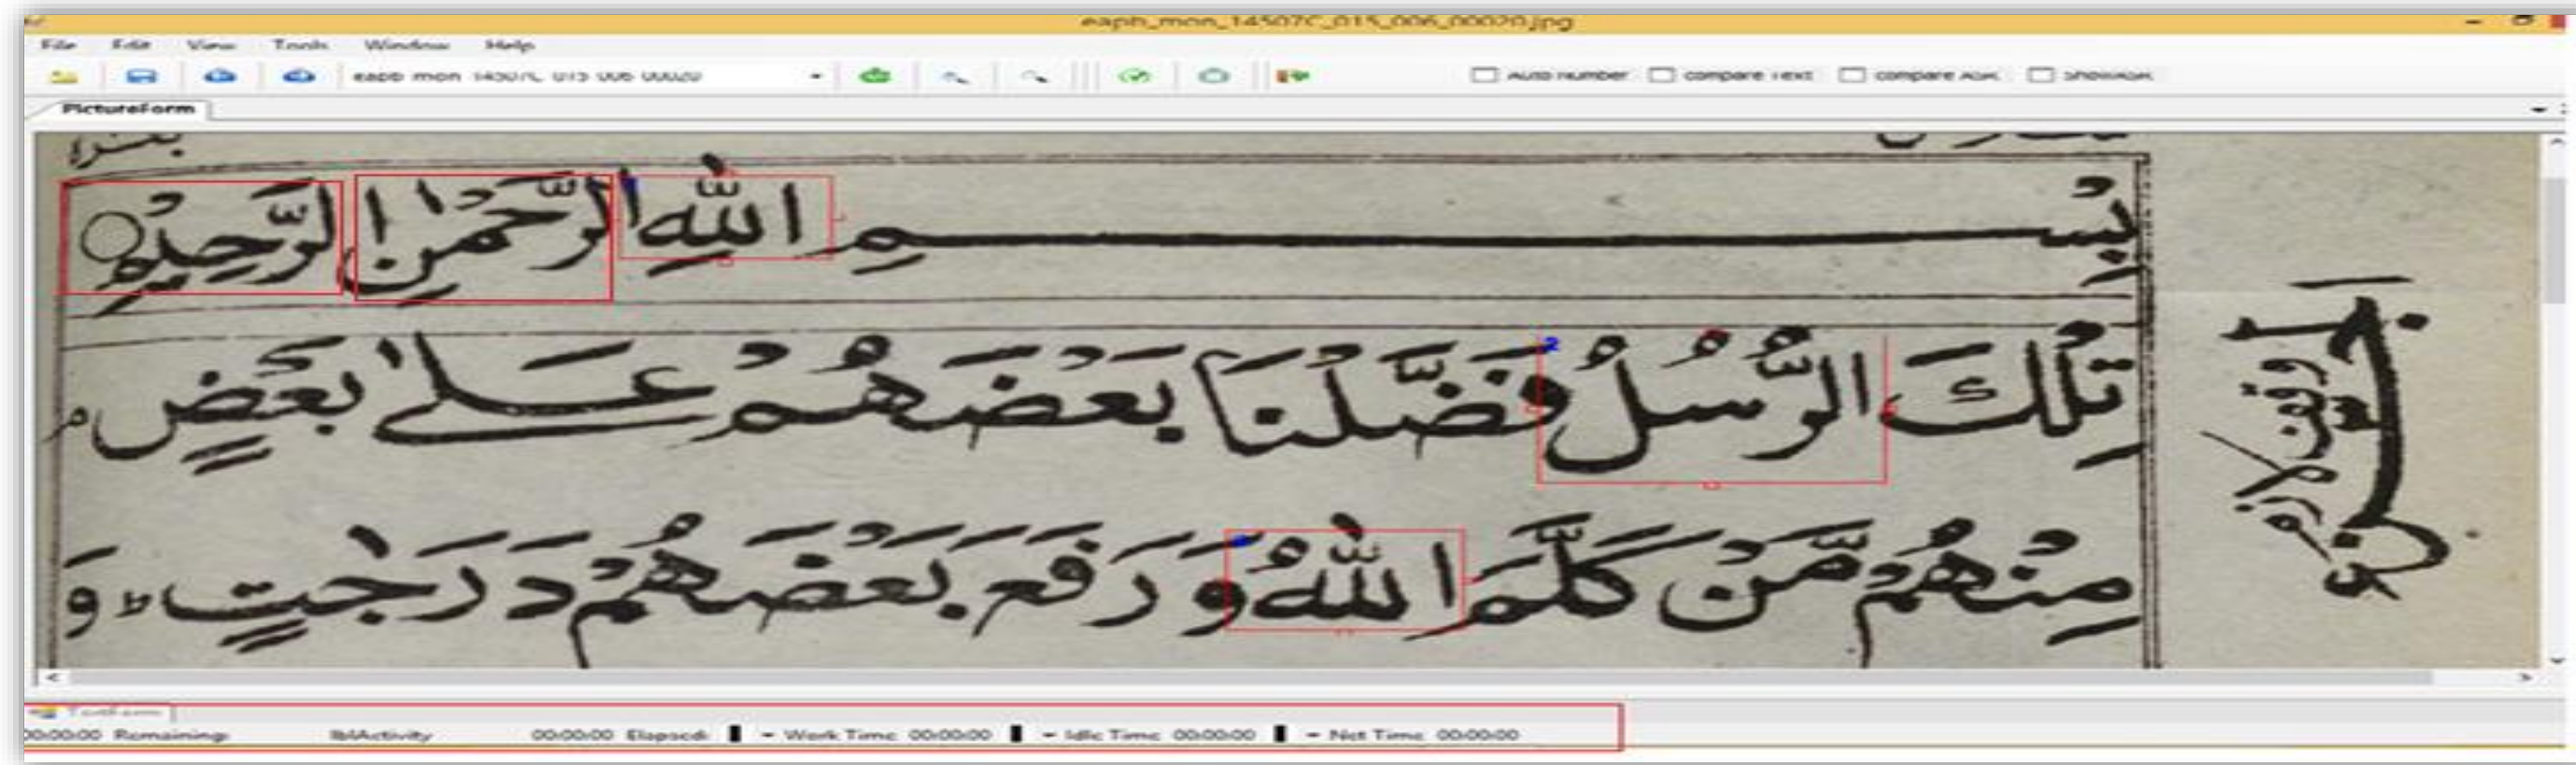 eapb_mon_14507C_015_006_00020.jpg
File Edit View Tools Window Help
eapb mon 14507C 015 006 00020 Auto Number compare Text compare ASK ShowASK
PictureForm
بِسْمِ اللّٰهِ الرَّحْمٰنِ الرَّحِيْمِ
تِلْكَ الرُّسُلُ فَضَّلْنَا بَعْضَهُمْ عَلٰى بَعْضٍ م
مِنْهُمْ مَّنْ كَلَّمَ اللّٰهُ وَ رَفَعَ بَعْضَهُمْ دَرَجٰتٍ ط وَ
TextForm
00:00:00 Remaining: lblActivity 00:00:00 Elapsed: Work Time 00:00:00 Idle Time 00:00:00 Net Time 00:00:00